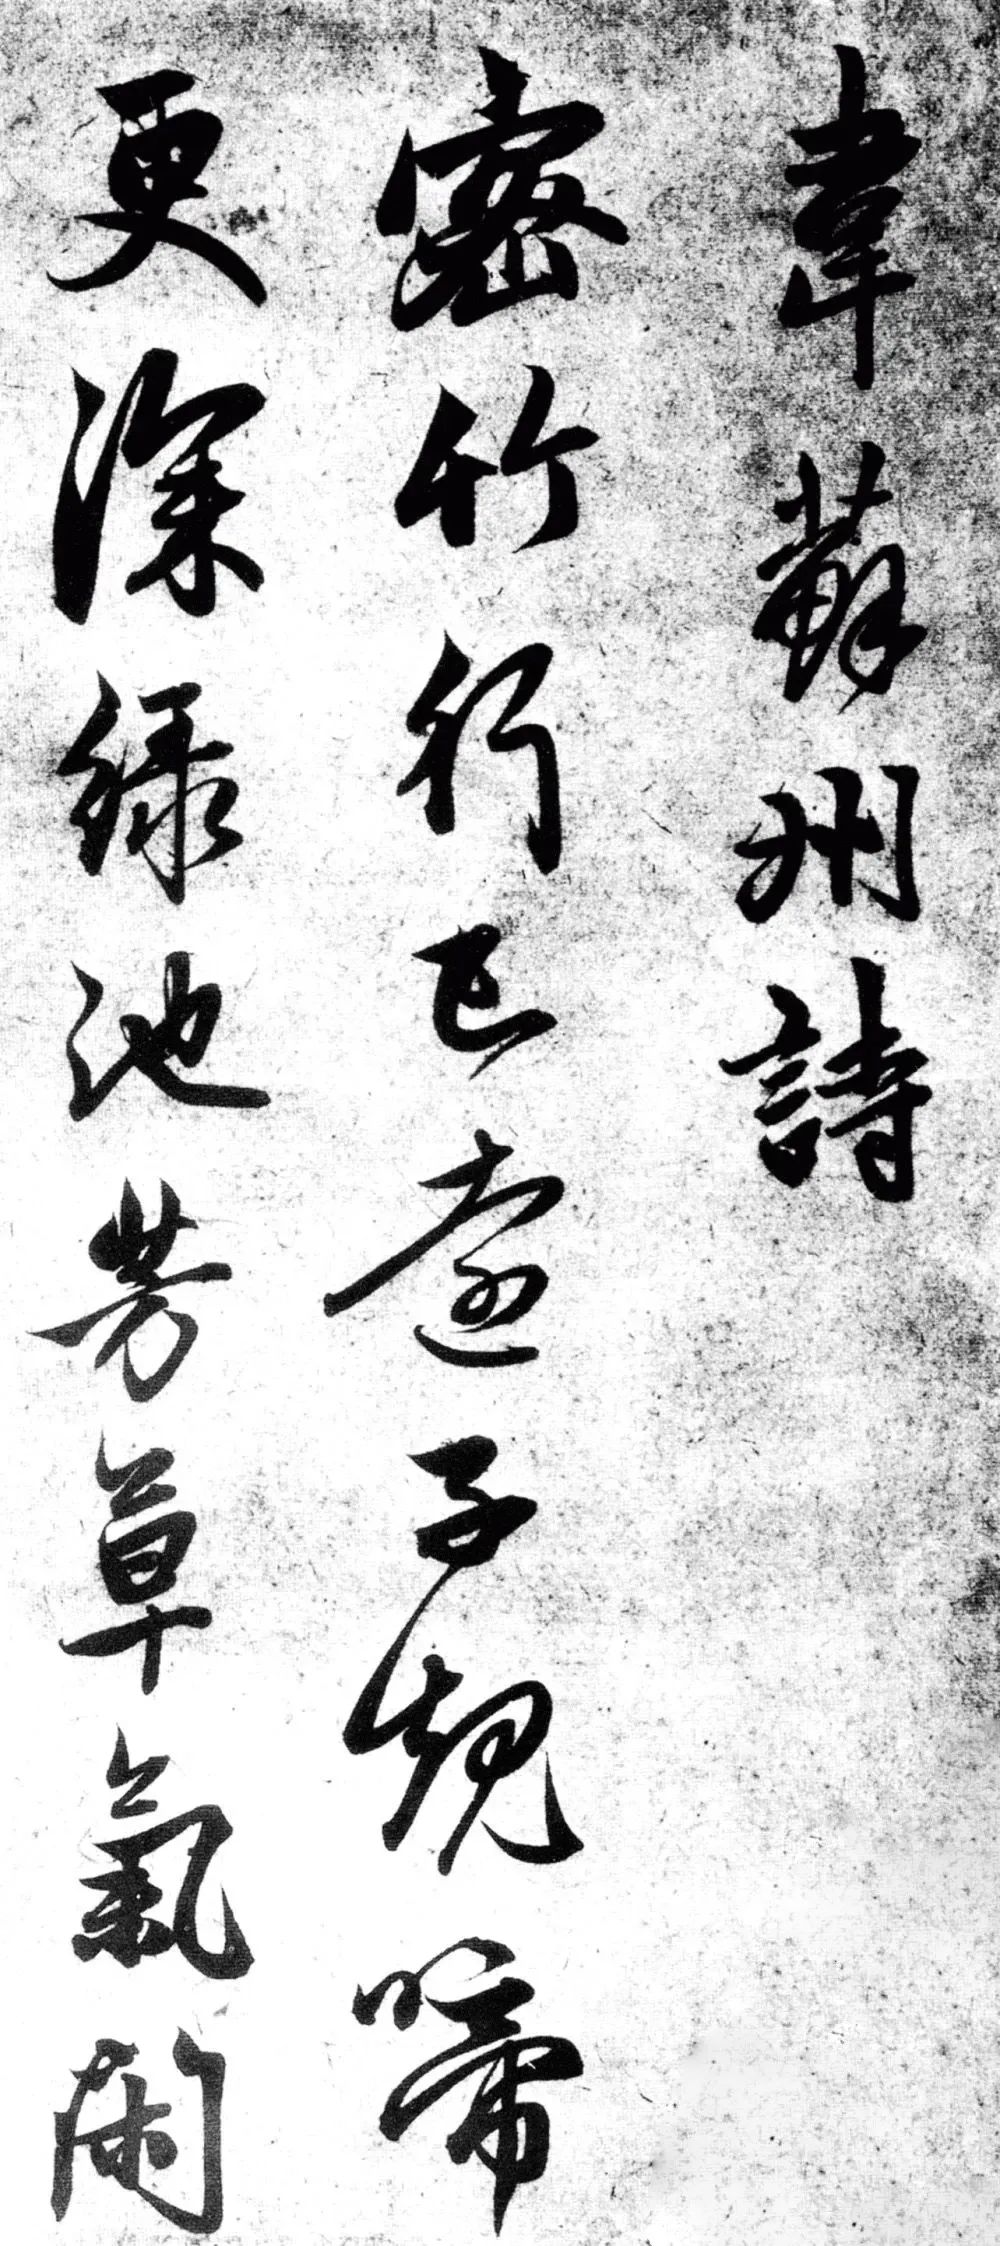 韋蘇州詩
密竹行已遠子規啼
更深綠池芳草氣閑